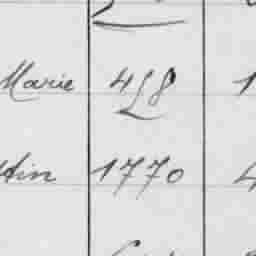 Marie 428 1
tin 1770 4